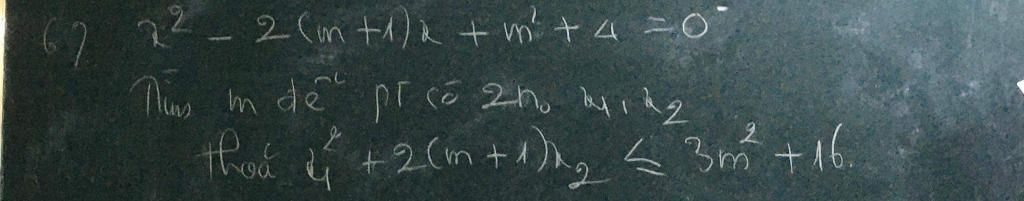 6) x² - 2(m+1)x + m² + 4 = 0
Tìm m để pt có 2 n₀ x₁, x₂
thoả x₁² + 2(m+1)x₂ ≤ 3m² + 16.